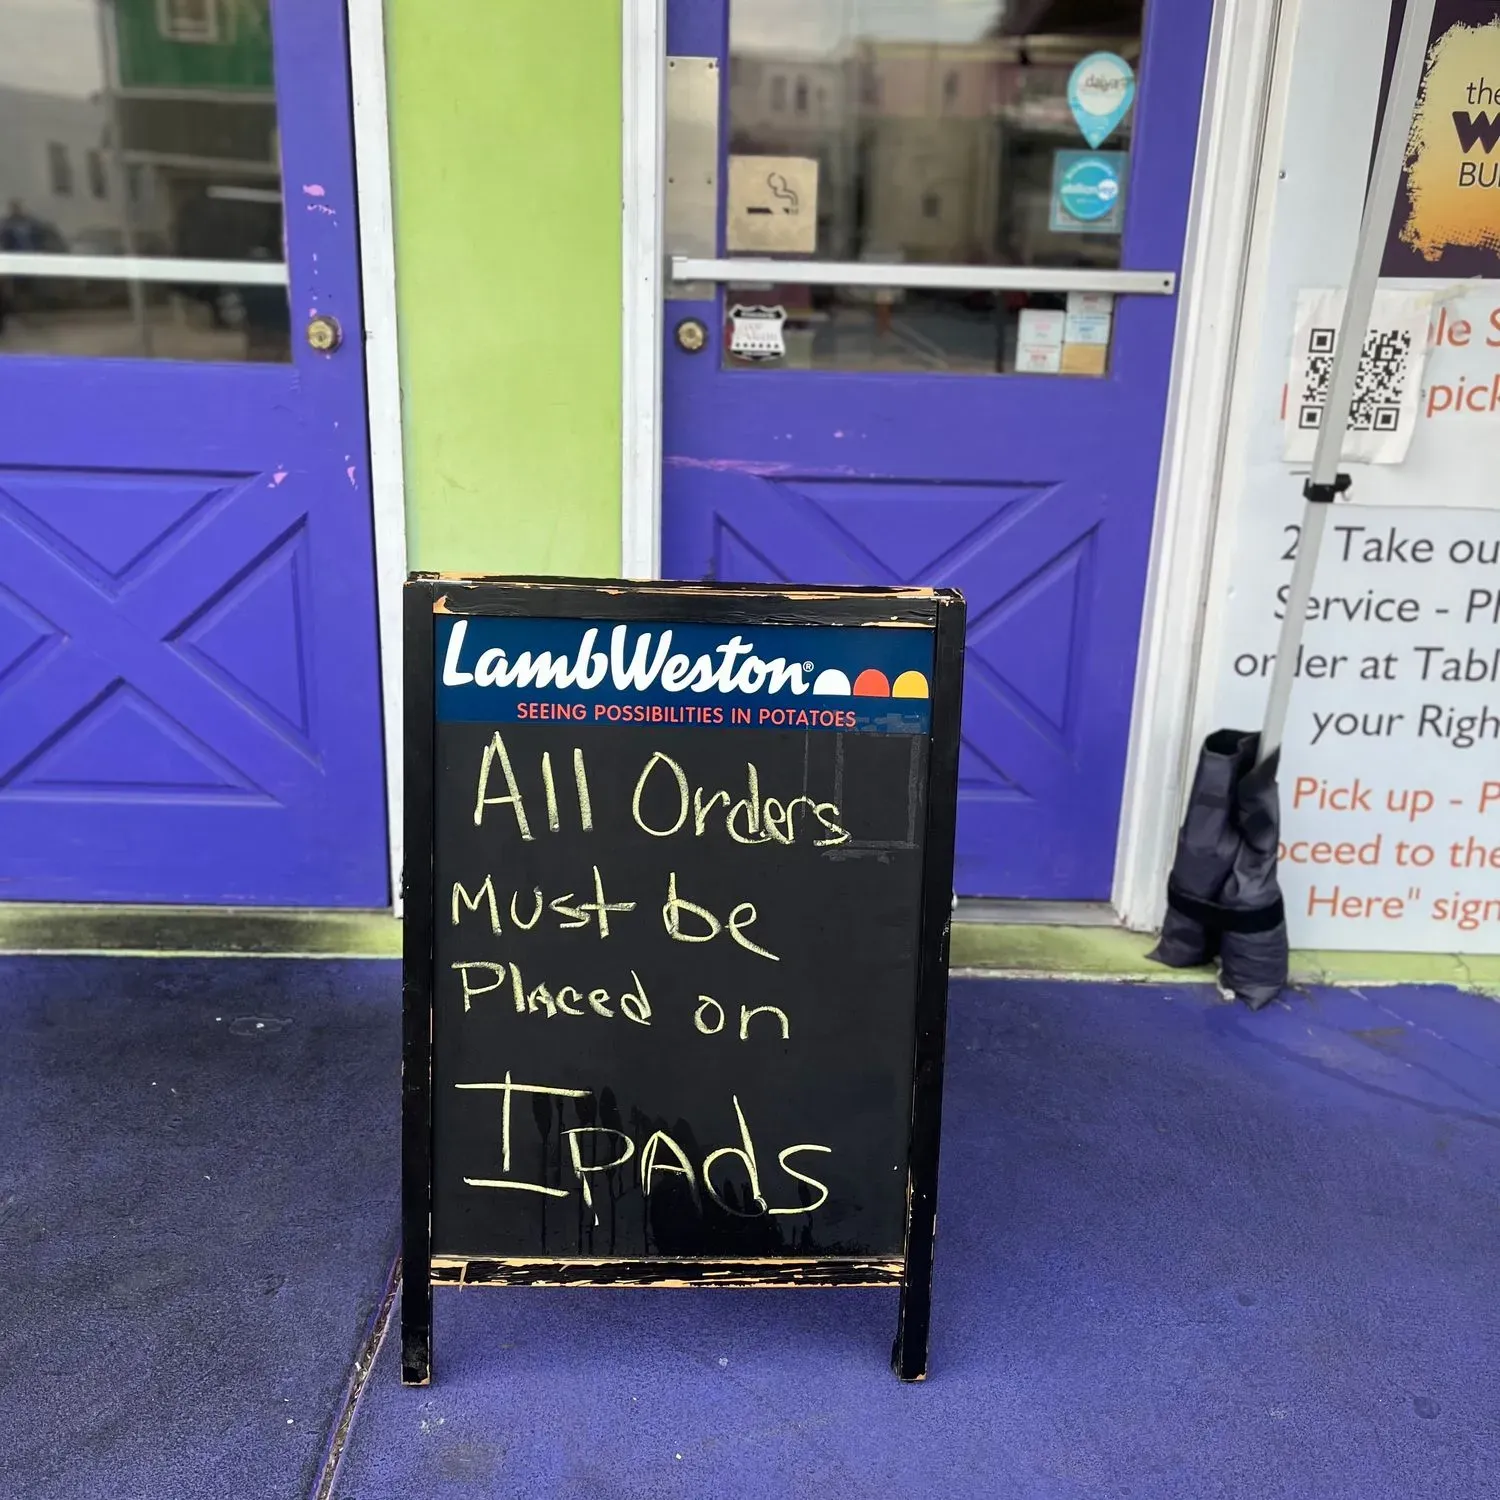 LambWeston®
SEEING POSSIBILITIES IN POTATOES
All Orders
Must be
Placed on
IPADS
daiya
the
BU
pick
2 Take ou
Service - Pl
order at Tabl
your Righ
Pick up - P
oceed to the
Here" sign